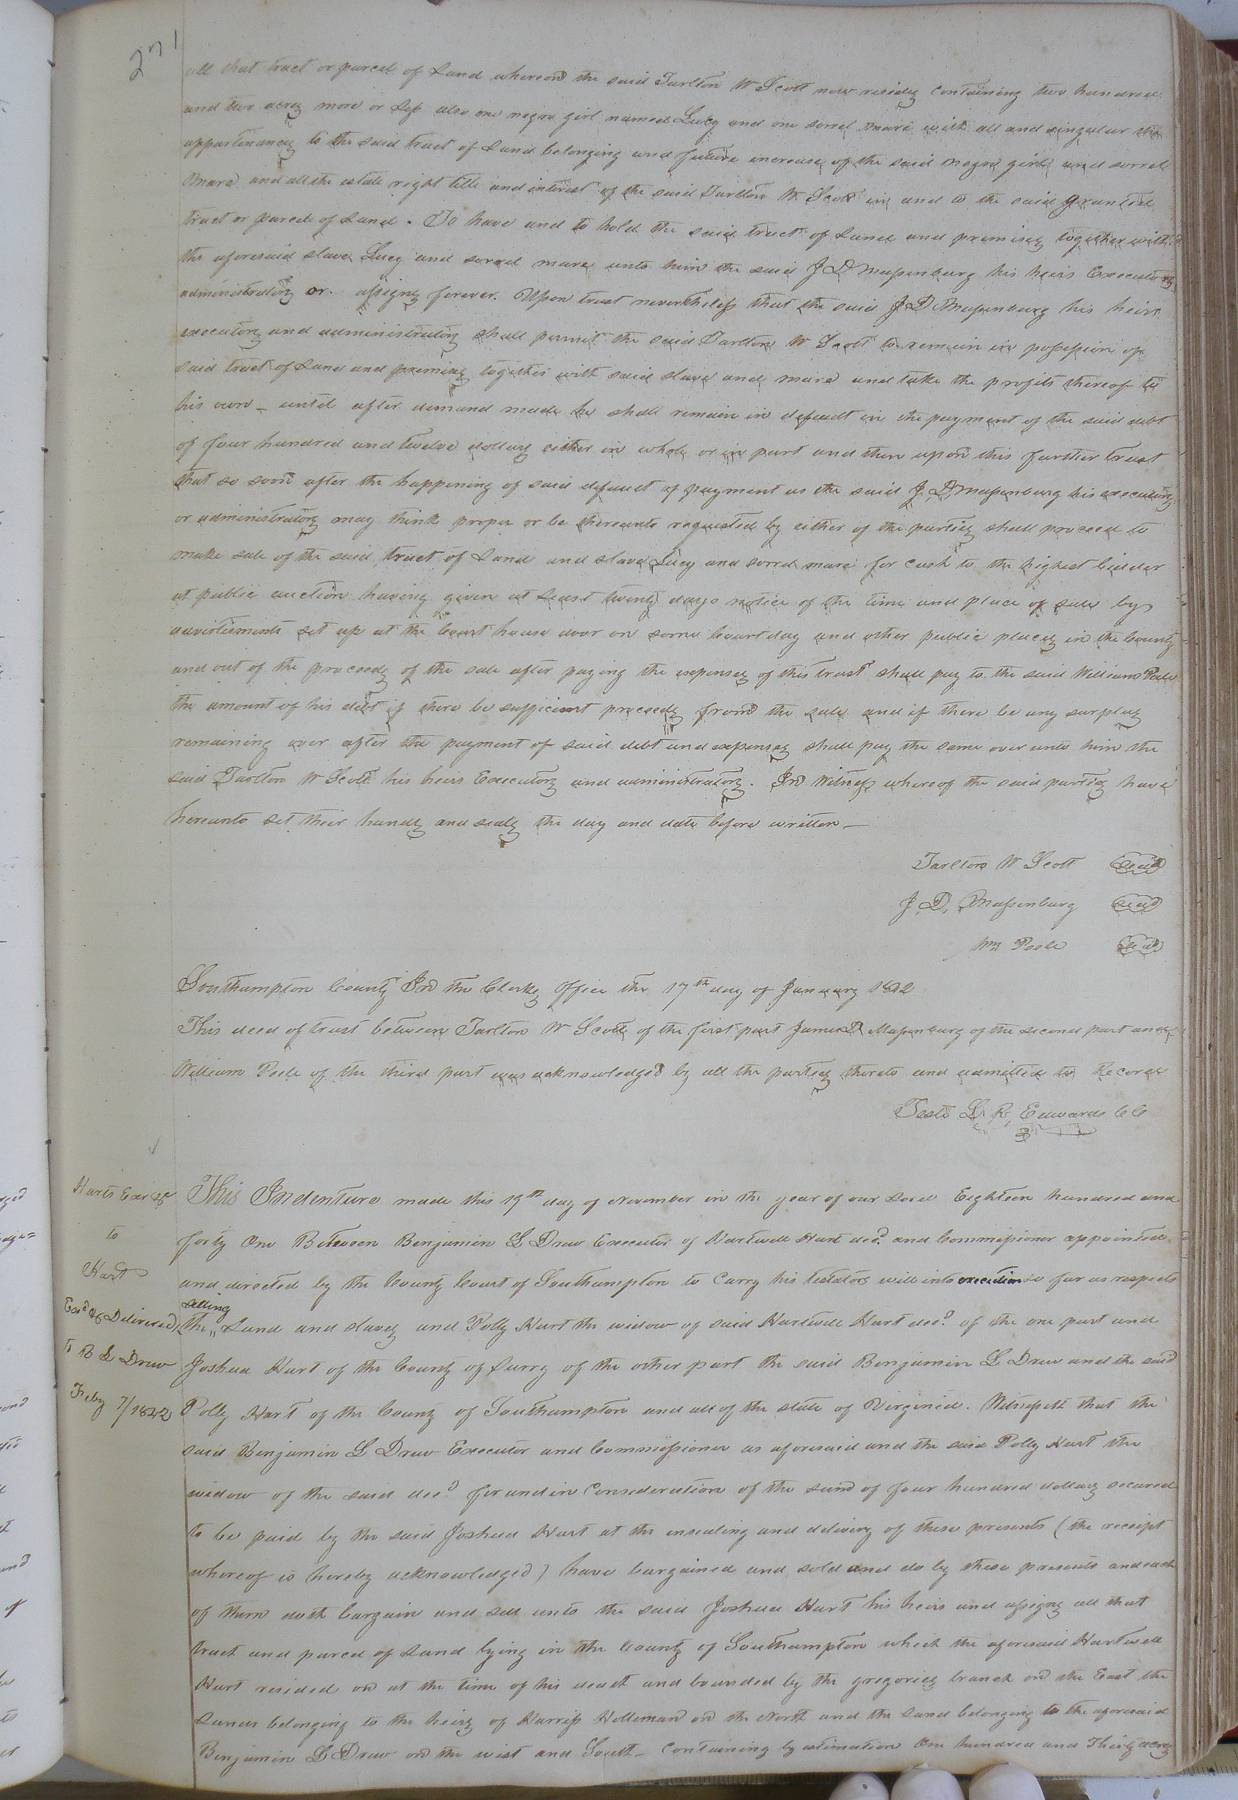 271
all that tract or parcel of Land whereon the said Tarlton W Scott now resides containing two hundred
and two acres more or less also one negro girl named Lucy and one sorrel mare with all and singular the
appurtinances to the said tract of Land belonging and future increase of the said negro girl and sorrel
mare and all the estate right title and interest of the said Tarlton W. Scott in and to the said granted
tract or parcel of Land. To have and to hold the said tract of Land and premises together with
the aforesaid slave Lucy and sorrel mare unto him the said J D Massenburg his heirs Executors
administrators or assigns forever. Upon trust nevertheless that the said J D Massenburg his heirs
executors and administrators shall permit the said Tarlton W Scott to remain in possession of
said tract of Land and premises together with said slave and mare and take the profits thereof to
his own _ until after demand made he shall remain in default in the payment of the said debt
of four hundred and twelve dollars either in whole or in part and then upon this further trust
that so soon after the happening of said default of payment as the said J. D Massenburg his executors
or administrators may think proper or be thereunto requested by either of the parties shall proceed to
make sale of the said tract of Land and slave Lucy and sorrel mare for cash to the highest bidder
at public auction having given at least twenty days notice of the time and place of sale by
advertisements set up at the Court house door on some Court day and other public places in the County
and out of the proceeds of the sale after paying the expenses of this trust shall pay to the said William Pool
the amount of his debt if there be sufficient proceeds from the sale and if there be any surplus
remaining over after the payment of said debt and expenses shall pay the same over unto him the
said Tarlton W Scott his heirs Executors and administrators. In Witness whereof the said parties have
hereunto set their hands and seals the day and date before written _
Tarlton W Scott Seal
J. D, Massenburg Seal
Wm Poole Seal
Southampton County In the Clerks Office the 17th day of January 1842
This deed of trust between Tarlton W Scott of the first part James D Massenburg of the second part and
William Poole of the third part was acknowledged by all the parties thereto and admitted to Record
Teste L. R, Edwards CC
Harts Exor &c
to
Hart
Exd & Delivered
to B L Drew
Feby 7/1842
This Indenture made this 19th day of November in the year of our Lord Eighteen hundred and
forty One Between Benjamin L Drew Executor of Hartwell Hart decd. and Commissioner appointed
and directed by the County Court of Southampton to Carry his testators will into execution so far as respects
selling
the Land and slaves and Polly Hart the widow of said Hartwell Hart decd. of the one part and
Joshua Hart of the County of Surry of the other part the said Benjamin L Drew and the said
Polly Hart of the County of Southampton and all of the state of Virginia. Witnesseth that the
said Benjamin L Drew Executor and Commissioner as aforesaid and the said Polly Hart the
widow of the said decd for and in Consideration of the sum of four hundred dollars secured
to be paid by the said Joshua Hart at the ensealing and delivery of these presents (the receipt
whereof is hereby acknowledged) have bargained and sold and do by these presents and each
of them doth bargain and sell unto the said Joshua Hart his heirs and assigns all that
tract and parcel of Land lying in the County of Southampton which the aforesaid Hartwell
Hart resided on at the time of his death and bounded by the gregories branch on the East the
Lands belonging to the heirs of Harriss Holleman on the North and the Land belonging to the aforesaid
Benjamin L Drew on the west and South_ Containing by estimation One hundred and Thirty acres